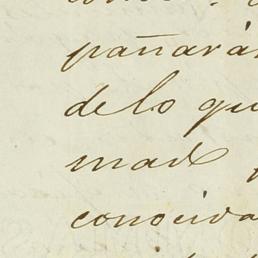 pañarán
de lo qu
mad
conocida